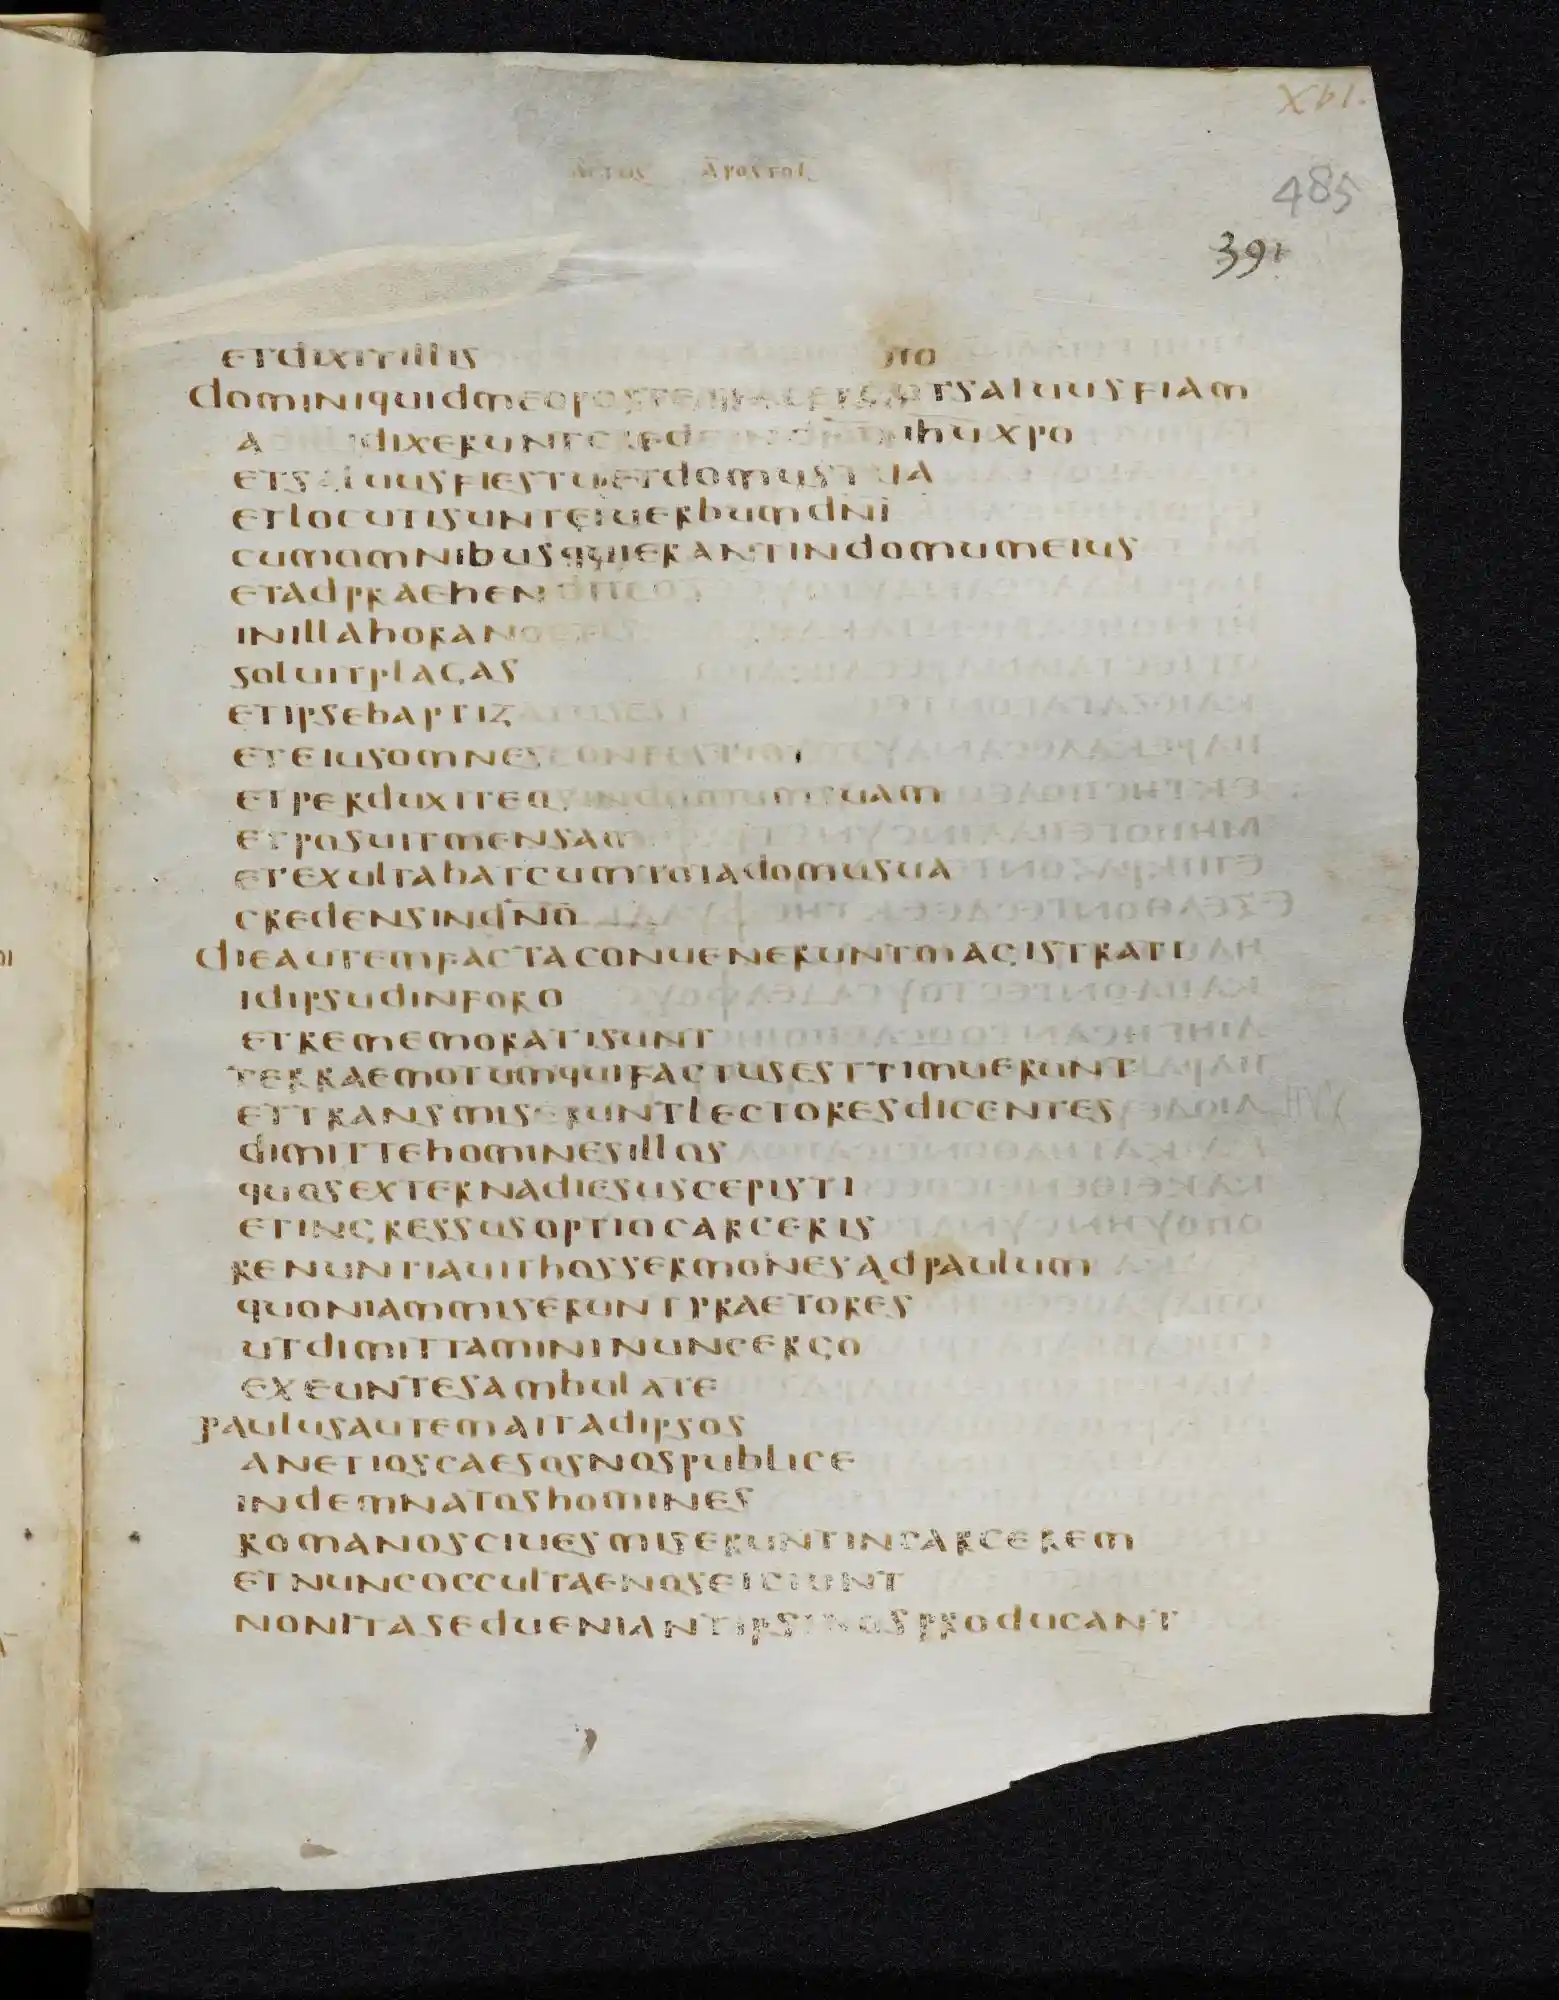 XVI.
Actus Apostol
485
391
etdixitillis
dominiquidmeoportetfacereutsaluusfiam
dixeruntcredeindnoihuxpo
etsaluusfiestuetdomustua
etlocutisunteiuerbumdni
cumomnibusquierantindomumeius
etadpraehen
inillahoranoctis
soluitplagas
etipsebaptizatusest
eteiusomnesconfestim
etperduxiteosindomumsuam
etposuitmensam
etexultabatcumtotadomusua
credensindno
dieautemfactaconueneruntmagistrati
idipsudinforo
etrememoratisunt
terraemotumquifactusesttimuerunt
ettransmiseruntlectoresdicentes
dimittehominesillos
quosexternadiesuscepisti
etingressusoptiocarceris
renuntiauithossermonesadpaulum
quoniammiseruntpraetores
utdimittamininuncergo
exeuntesambulate
paulusautemaitadipsos
anetioscaesosnospublice
indemnatoshomines
romanosciuesmiseruntincarcerem
etnuncoccultaenoseiciunt
nonitasedueniantipsinosproducant